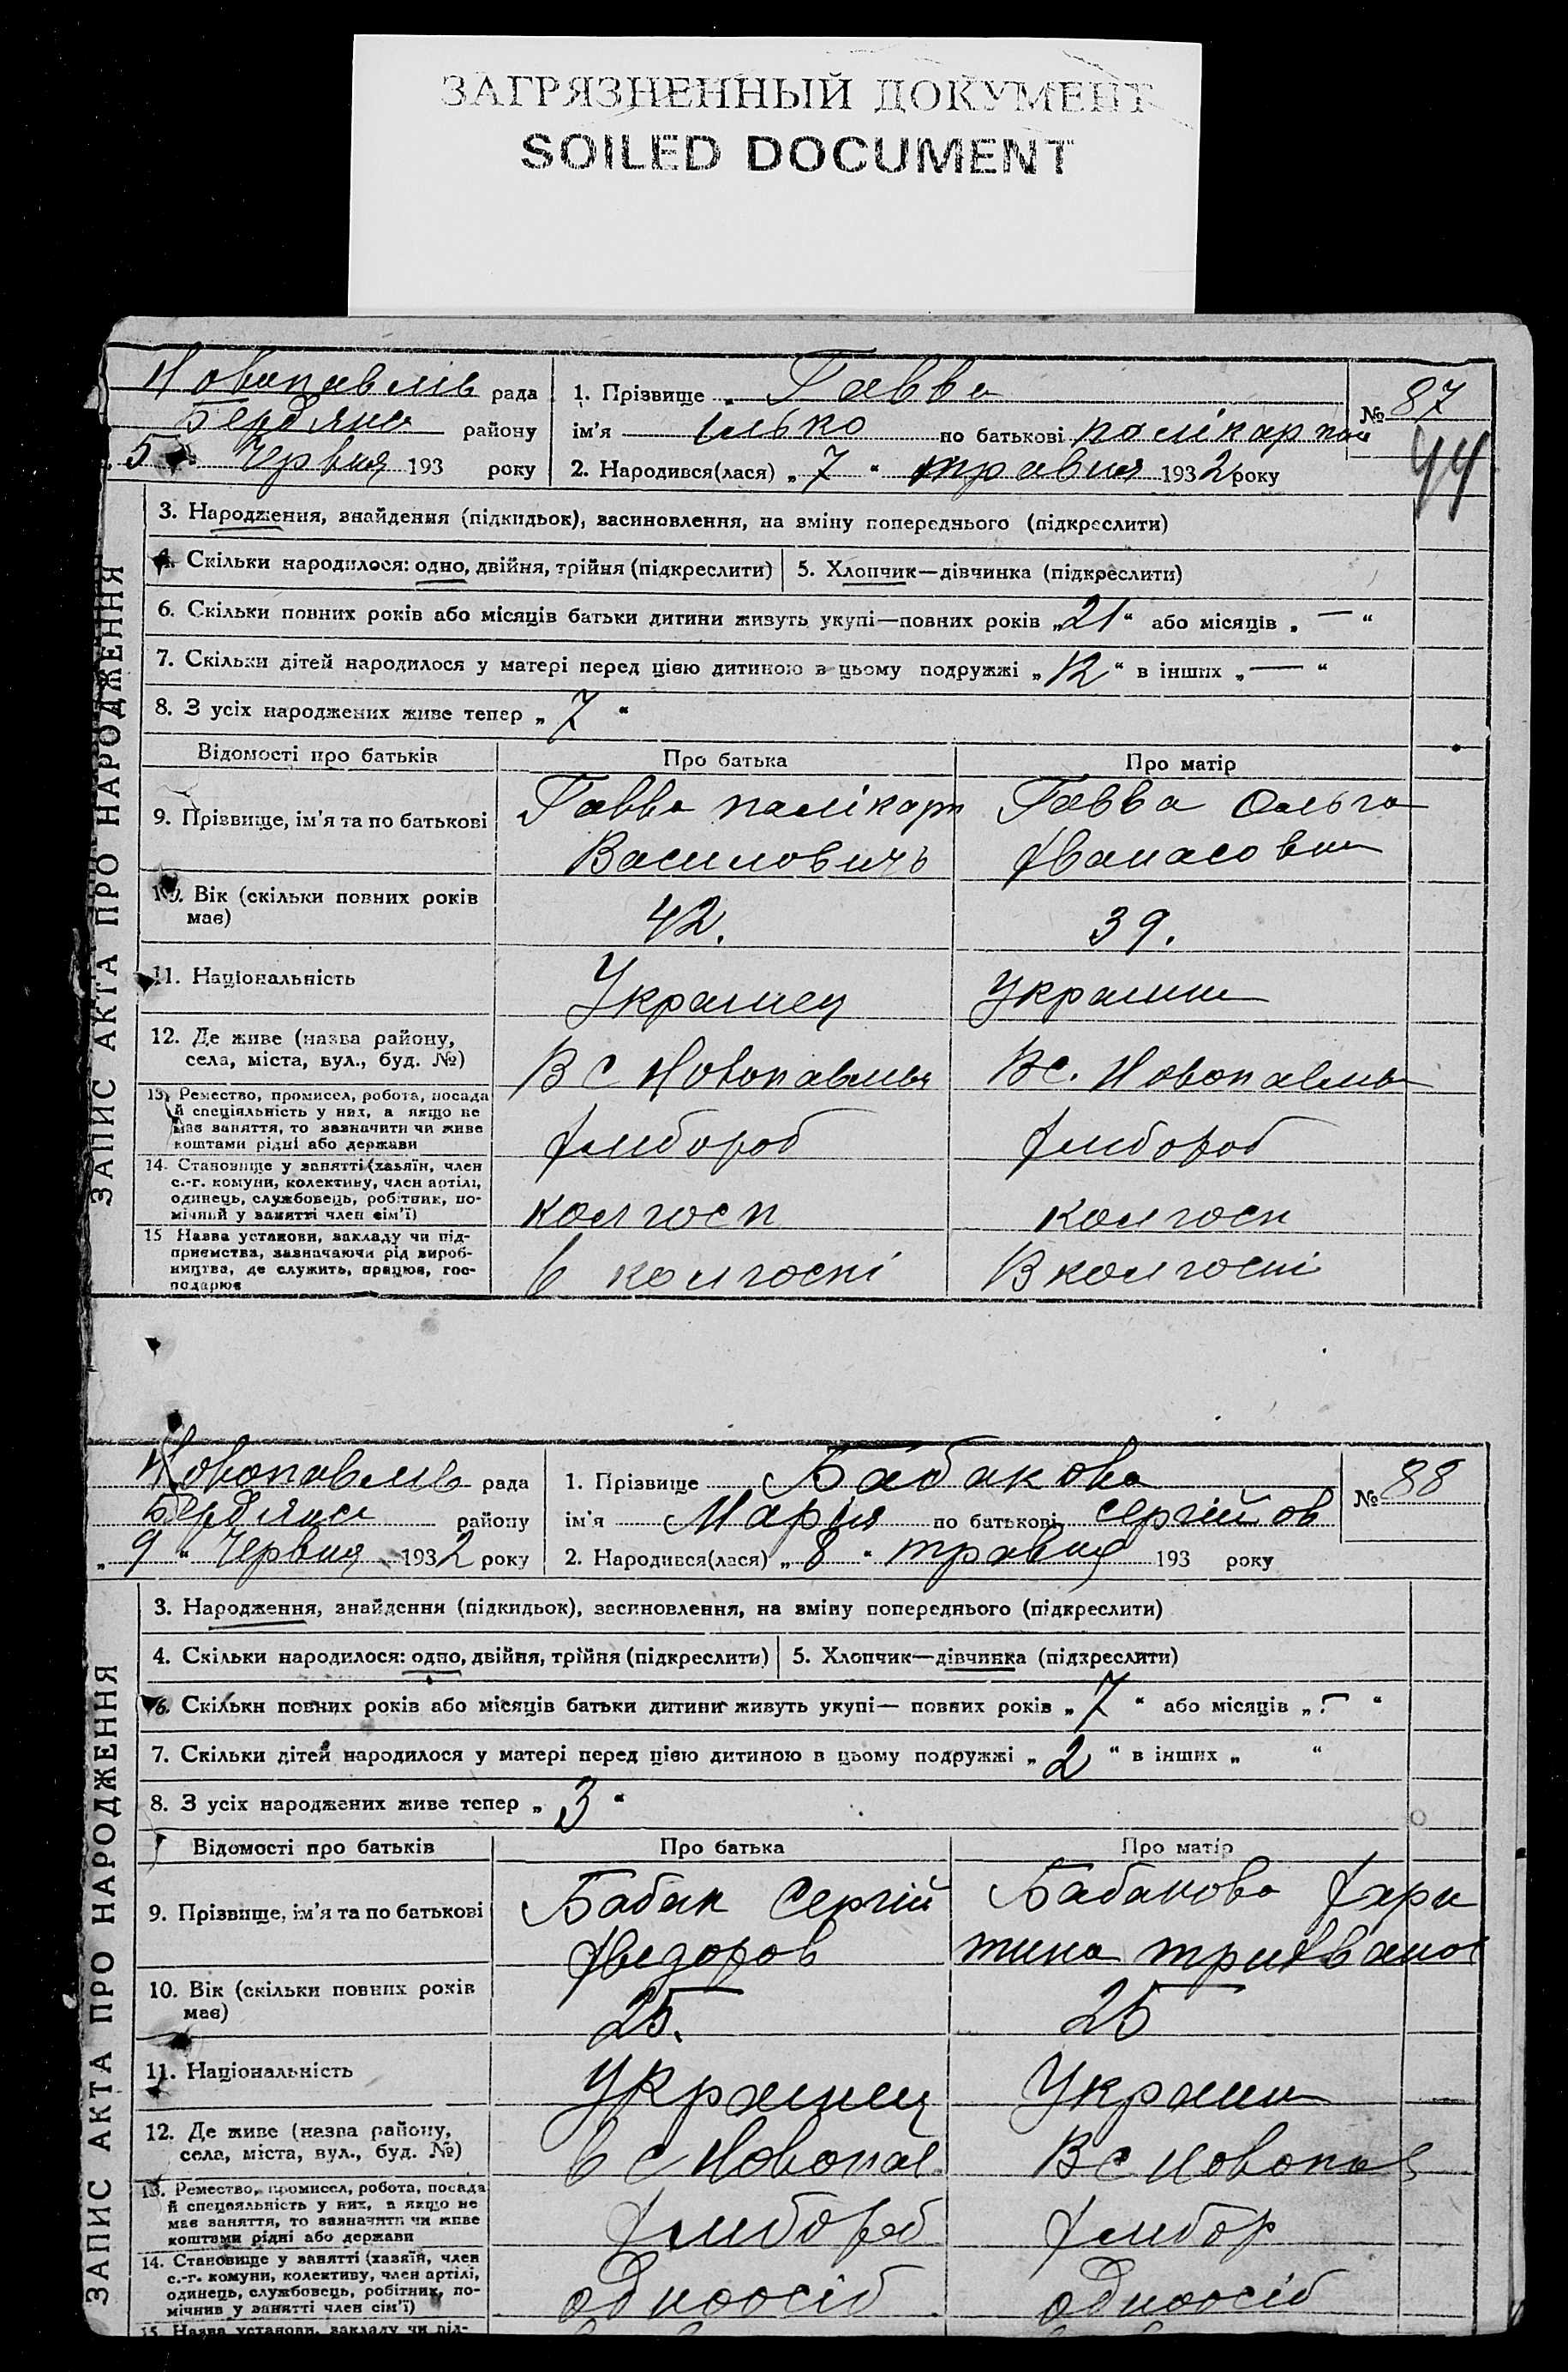 ЗАГРЯЗНЕННЫЙ ДОКУМЕНТ
SOILED DOCUMENT
ЗАПИС АКТА ПРО НАРОДЖЕННЯ
Новопавлів рада
Бердянс району
5 Червня 193 року
1. Прізвище Гавва
ім'я Ілько по батькові полікарпов
2. Народився(лася) „7“ травня 1932 року
№ 87
44
3. Народження, знайдення (підкидьок), засиновлення, на зміну попереднього (підкреслити)
4. Скільки народилося: одно, двійня, трійня (підкреслити) 5. Хлопчик—дівчинка (підкреслити)
6. Скільки повних років або місяців батьки дитини живуть укупі—повних років „21“ або місяців „—“
7. Скільки дітей народилося у матері перед цією дитиною в цьому подружжі „12“ в інших „—“
8. З усіх народжених живе тепер „7“
Відомості про батьків Про батька Про матір
9. Прізвище, ім'я та по батькові Гавва полікарп Гавва Ольга
Василовичь Аванасовна
10. Вік (скільки повних років
має) 42. 39.
11. Національність Украинец Украинка
12. Де живе (назва району,
села, міста, вул., буд. №) В С Новопавлівка В С. Новопавлівка
13. Ремество, промисел, робота, посада
й спеціяльність у них, а якщо не
має заняття, то зазначити чи живе
коштами рідні або держави хлибороб хлибороб
14. Становище у занятті (хазяїн, член
с.-г. комуни, колективу, член артілі,
одинець, службовець, робітник, по-
мічний у занятті член сім'ї) колгосп колгосп
15 Назва установи, закладу чи під-
приємства, зазначаючи рід вироб-
ництва, де служить, працює, гос-
подарює в колгоспі В колгоспі
ЗАПИС АКТА ПРО НАРОДЖЕННЯ
Новопавлів рада
Бердянсь району
„9“ Червня 1932 року
1. Прізвище Бабакова
ім'я Марія по батькові Сергійов
2. Народився(лася) „8“ травня 193 року
№ 88
3. Народження, знайдення (підкидьок), засиновлення, на зміну попереднього (підкреслити)
4. Скільки народилося: одно, двійня, трійня (підкреслити) 5. Хлопчик—дівчинка (підкреслити)
6. Скільки повних років або місяців батьки дитини живуть укупі— повних років „7“ або місяців „—“
7. Скільки дітей народилося у матері перед цією дитиною в цьому подружжі „2“ в інших „ “
8. З усіх народжених живе тепер „3“
Відомості про батьків Про батька Про матір
9. Прізвище, ім'я та по батькові Бабак Сергій Бабакова Хари
Хведоров тина
10. Вік (скільки повних років
має) 25. 25
11. Національність Украинец Украин
12. Де живе (назва району,
села, міста, вул., буд. №) в С Новопав В С Новопав
13. Ремество, промисел, робота, посада
й спеціяльність у них, а якщо не
має заняття, то зазначити чи живе
коштами рідні або держави хлибороб хлибор
14. Становище у занятті (хазяїн, член
с.-г. комуни, колективу, член артілі,
одинець, службовець, робітник, по-
мічний у занятті член сім'ї) одноосіб одноосіб
15. Назва установи, закладу чи під-